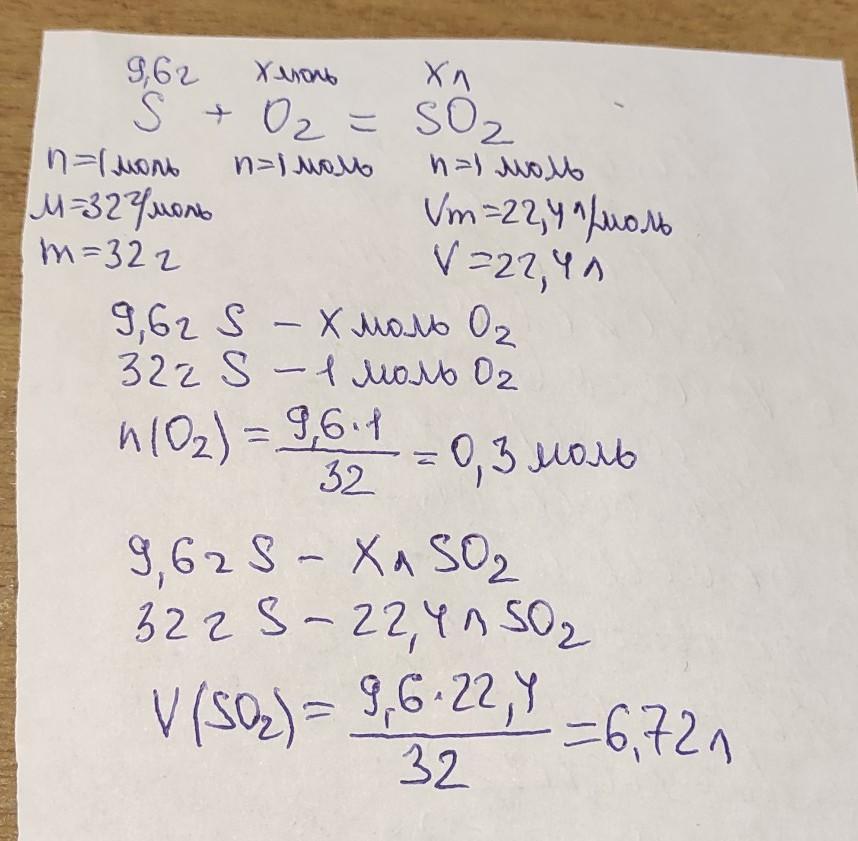 9,6г х моль х л
S + O₂ = SO₂
n=1 моль n=1 моль n=1 моль
M=32г/моль Vm=22,4 л/моль
m=32 г V=22,4 л
9,6г S – х моль O₂
32г S – 1 моль O₂
n(O₂) = 9,6·1/32 = 0,3 моль
9,6г S – х л SO₂
32 г S – 22,4 л SO₂
V(SO₂) = 9,6·22,4/32 = 6,72 л